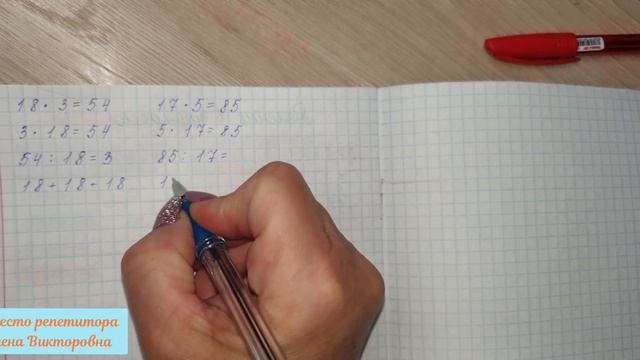 18 · 3 = 54
3 · 18 = 54
54 : 18 = 3
18 + 18 + 18
17 · 5 = 85
5 · 17 = 85
85 : 17 =
1
есто репетитора
ена Викторовна